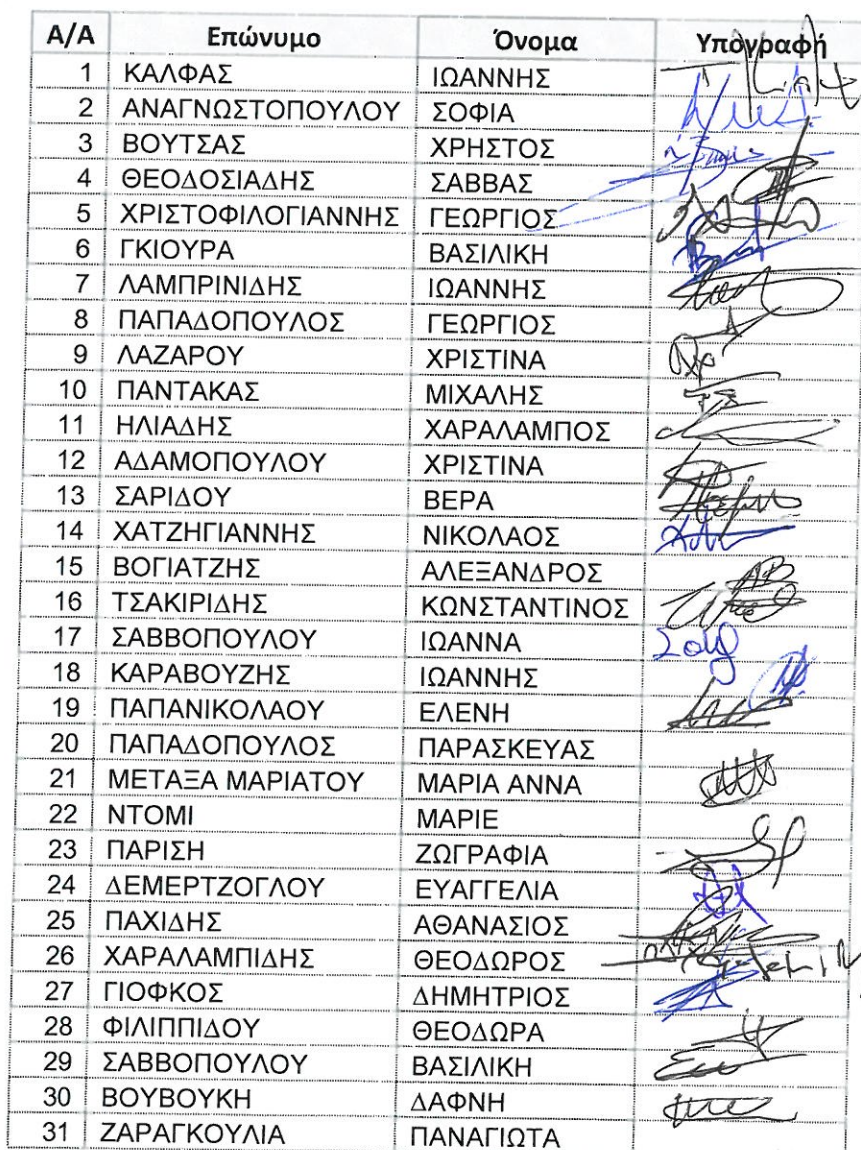 Α/Α Επώνυμο Όνομα Υπογραφή
1 ΚΑΛΦΑΣ ΙΩΑΝΝΗΣ
2 ΑΝΑΓΝΩΣΤΟΠΟΥΛΟΥ ΣΟΦΙΑ
3 ΒΟΥΤΣΑΣ ΧΡΗΣΤΟΣ
4 ΘΕΟΔΟΣΙΑΔΗΣ ΣΑΒΒΑΣ
5 ΧΡΙΣΤΟΦΙΛΟΓΙΑΝΝΗΣ ΓΕΩΡΓΙΟΣ
6 ΓΚΙΟΥΡΑ ΒΑΣΙΛΙΚΗ
7 ΛΑΜΠΡΙΝΙΔΗΣ ΙΩΑΝΝΗΣ
8 ΠΑΠΑΔΟΠΟΥΛΟΣ ΓΕΩΡΓΙΟΣ
9 ΛΑΖΑΡΟΥ ΧΡΙΣΤΙΝΑ
10 ΠΑΝΤΑΚΑΣ ΜΙΧΑΛΗΣ
11 ΗΛΙΑΔΗΣ ΧΑΡΑΛΑΜΠΟΣ
12 ΑΔΑΜΟΠΟΥΛΟΥ ΧΡΙΣΤΙΝΑ
13 ΣΑΡΙΔΟΥ ΒΕΡΑ
14 ΧΑΤΖΗΓΙΑΝΝΗΣ ΝΙΚΟΛΑΟΣ
15 ΒΟΓΙΑΤΖΗΣ ΑΛΕΞΑΝΔΡΟΣ
16 ΤΣΑΚΙΡΙΔΗΣ ΚΩΝΣΤΑΝΤΙΝΟΣ
17 ΣΑΒΒΟΠΟΥΛΟΥ ΙΩΑΝΝΑ
18 ΚΑΡΑΒΟΥΖΗΣ ΙΩΑΝΝΗΣ
19 ΠΑΠΑΝΙΚΟΛΑΟΥ ΕΛΕΝΗ
20 ΠΑΠΑΔΟΠΟΥΛΟΣ ΠΑΡΑΣΚΕΥΑΣ
21 ΜΕΤΑΞΑ ΜΑΡΙΑΤΟΥ ΜΑΡΙΑ ΑΝΝΑ
22 ΝΤΟΜΙ ΜΑΡΙΕ
23 ΠΑΡΙΣΗ ΖΩΓΡΑΦΙΑ
24 ΔΕΜΕΡΤΖΟΓΛΟΥ ΕΥΑΓΓΕΛΙΑ
25 ΠΑΧΙΔΗΣ ΑΘΑΝΑΣΙΟΣ
26 ΧΑΡΑΛΑΜΠΙΔΗΣ ΘΕΟΔΩΡΟΣ
27 ΓΙΟΦΚΟΣ ΔΗΜΗΤΡΙΟΣ
28 ΦΙΛΙΠΠΙΔΟΥ ΘΕΟΔΩΡΑ
29 ΣΑΒΒΟΠΟΥΛΟΥ ΒΑΣΙΛΙΚΗ
30 ΒΟΥΒΟΥΚΗ ΔΑΦΝΗ
31 ΖΑΡΑΓΚΟΥΛΙΑ ΠΑΝΑΓΙΩΤΑ